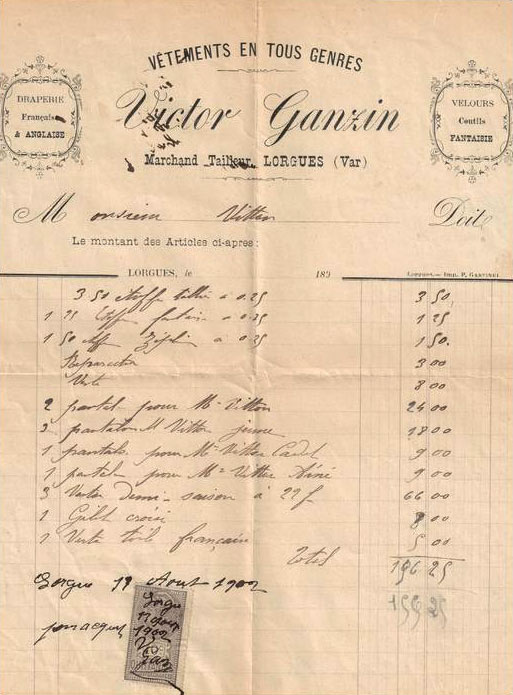 VÊTEMENTS EN TOUS GENRES
DRAPERIE
Française
& ANGLAISE
Victor Ganzin
VELOURS
Coutils
FANTAISIE
Marchand Tailleur, LORGUES (Var)
Monsieur Vitton Doit
Le montant des Articles ci-apres:
LORGUES, le 189
3 50 à 0.25 3 50
1 25 1 25
1 50 à 0.25 1 50
Reparation 3 00
8 00
2 pour Mr Vitton 24 00
2 pantalon M Vitton jeune 18 00
1 pantal pour Mr Vitton Cadet 9 00
1 pour Mr Vitton Ainé 9 00
3 Veston demi-saison à 22f 66 00
1 Gilet croisé 8 00
1 Veste toile français 5 00
Total 196 25
Lorgues 19 Aout 1902
pour acquit
Lorgues
1902